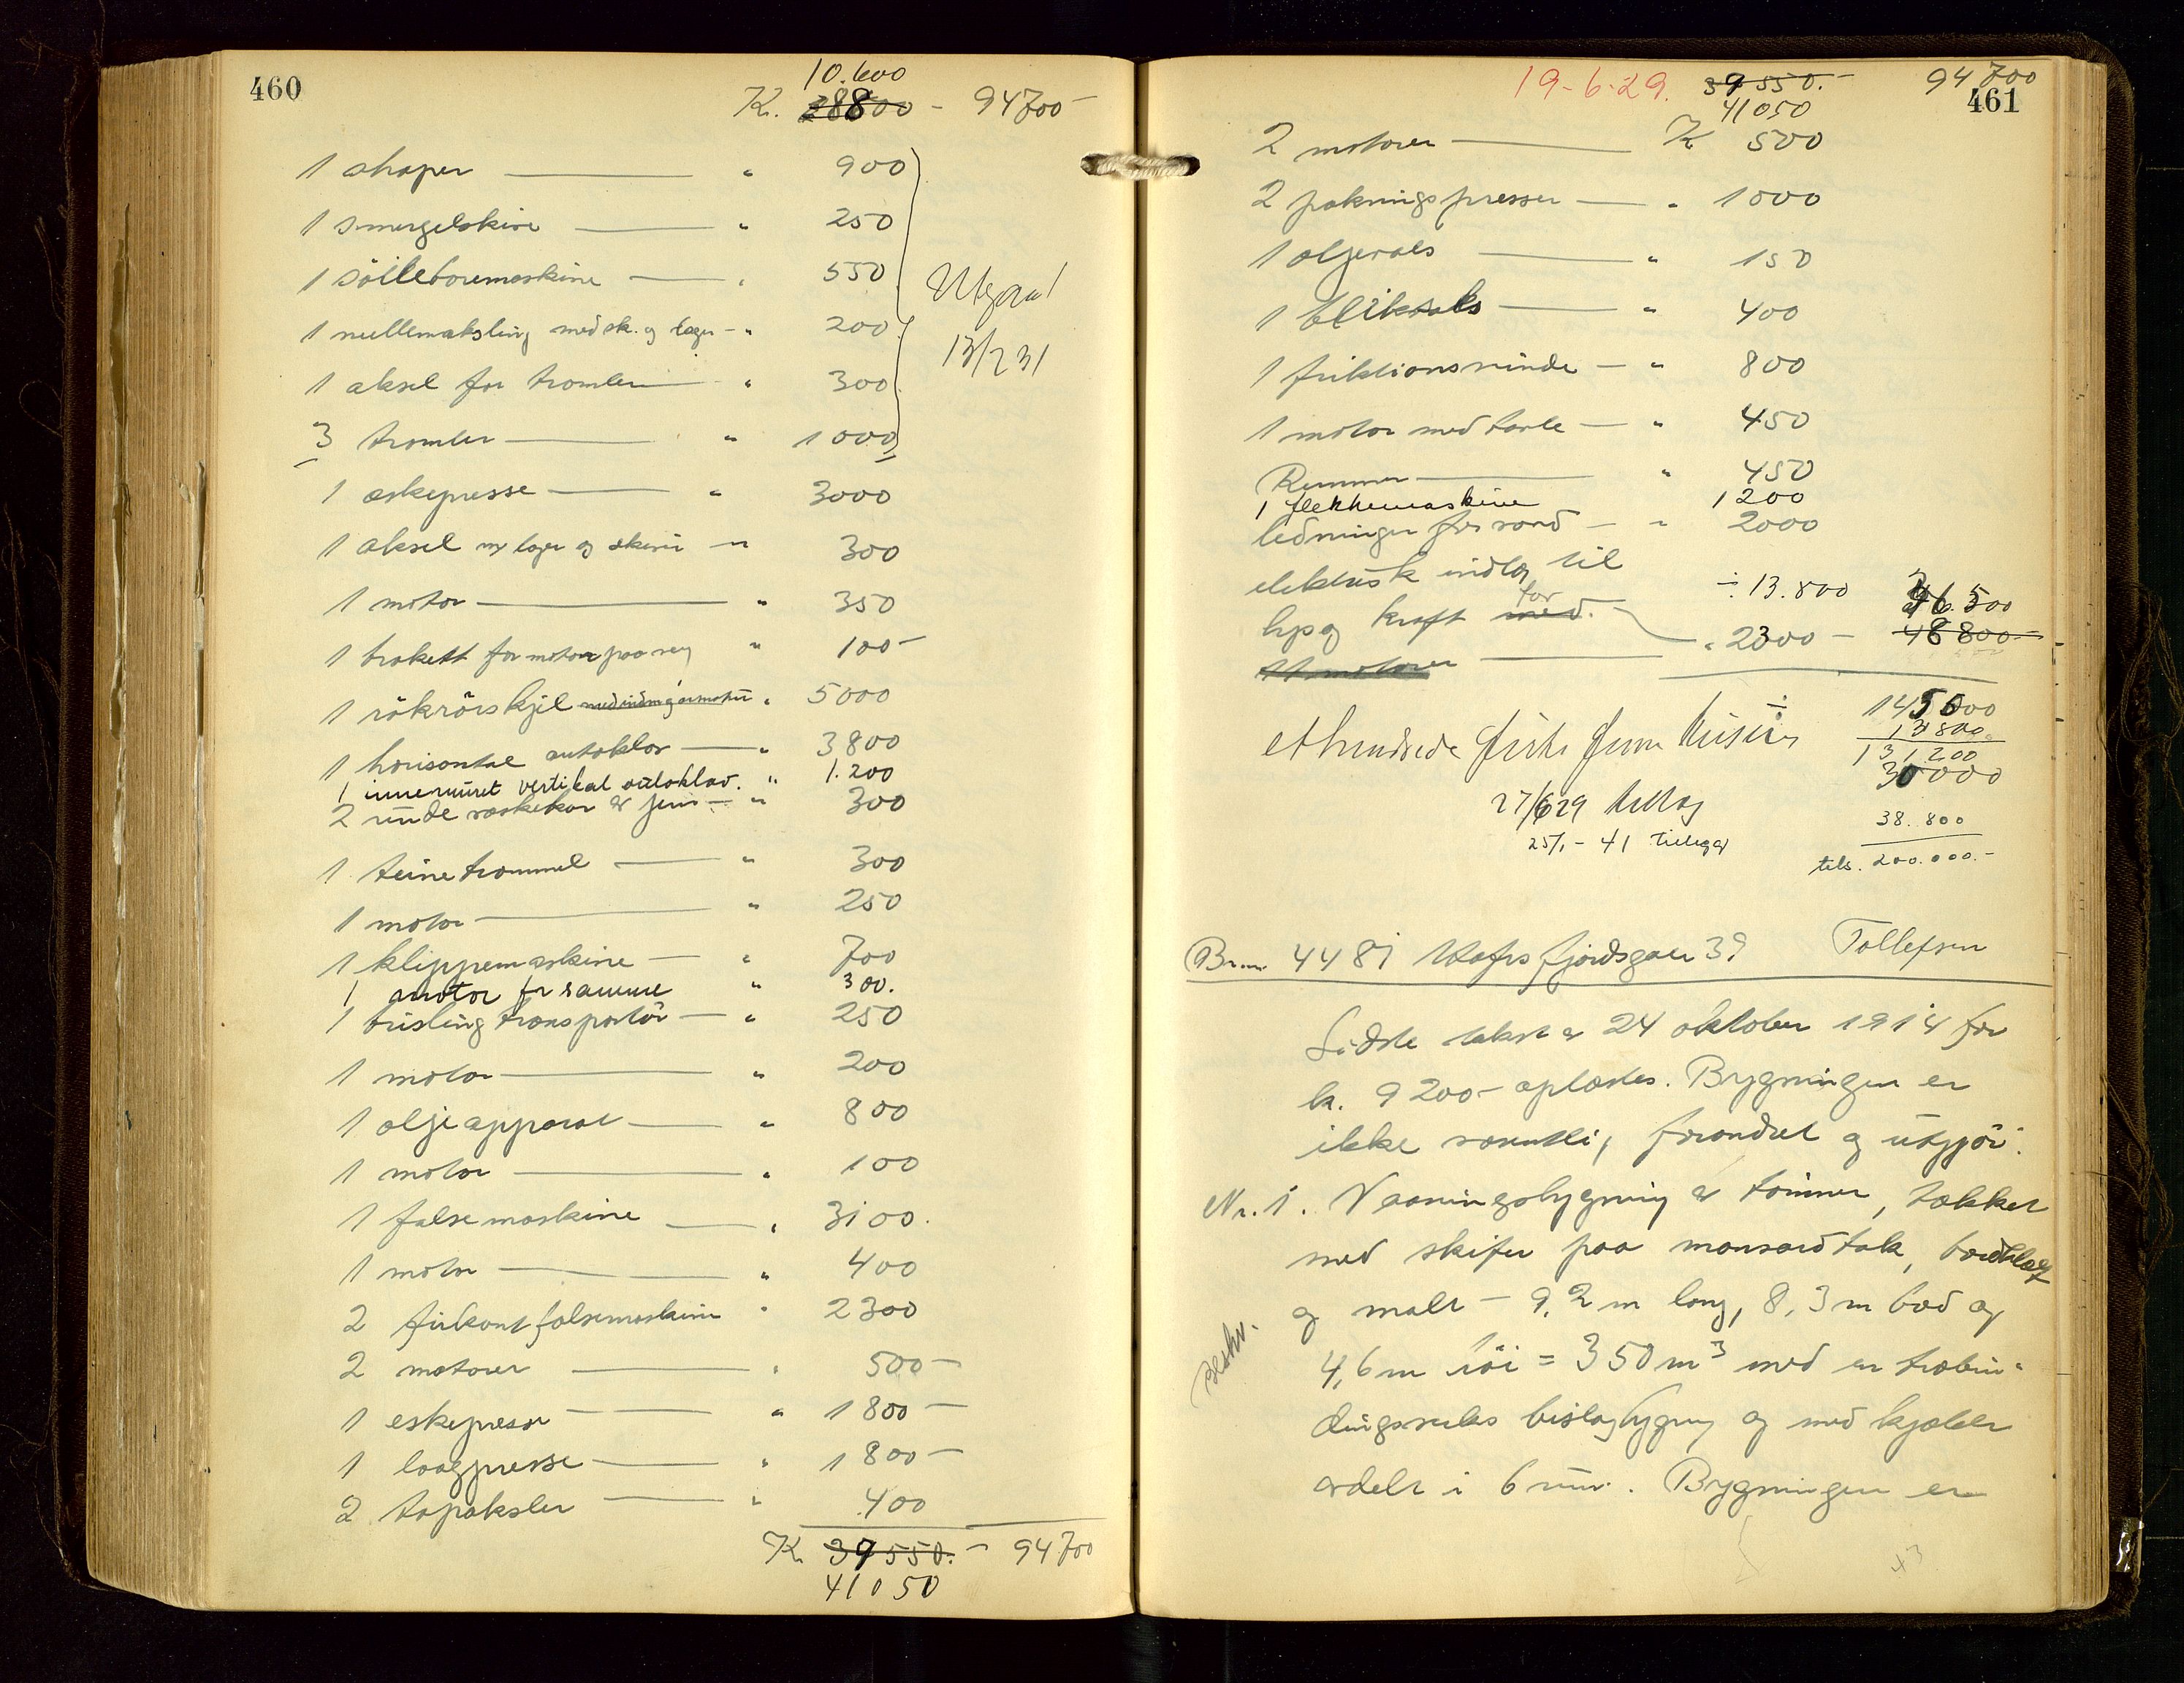 460
10.600
K. 28800 - 94700-
1 shaper — " 900
1 smergelskive — " 250
1 söileboremaskine — " 550
1 mellemaksling med sk. og lager - " 200
Utgaar
13/2 31
1 aksel for tromler — " 300
3 tromler — " 1000
1 æskepresse — " 3000
1 aksel m/ lager og skiver — " 300
1 motor — " 350
1 brakett for motor paa væg " 100-
1 rökrörskjel med indm. g armatur " 5000
1 horisontal autoklav — " 3800
1 innemuret vertikal autoklav. " 1.200
2 runde vaskekar av jern — " 300
1 teinetrommel — " 300
1 motor — " 250
1 klippemaskine — " 700
1 motor for samme " 300.
1 brisling transportör — " 250
1 motor — " 200
1 oljeapparat — " 800
1 motor — " 100
1 falsemaskine — " 3100.
1 motor — " 400
2 firkant falsemaskine " 2300
2 motorer — " 500-
1 eskepresse — " 1800-
1 laagpresse — " 1800-
2 topaksler — " 400
K. 39550.- 94700
41050
461
19-6-29. 39550.- 94700
41050
2 motorer — K 500
2 pakningspresser — " 1000
1 oljevals — " 150
1 bliksaks — " 400
1 friktionsvinde — " 800
1 motor med tavle — " 450
Remmer — " 450
1 flekkemaskine 1200
ledninger for vand — " 2000
elektrisk indlæg til
÷ 13.800 46.500
lys og kraft med. for " 2300 - 48800-
11 motorer
145000
÷ 13800
et hundrede firti fem tusin
131200
30000
27/6 29 tillæg
38.800
25/1 - 41 tillegg
tils. 200.000.-
Br.nr. 4481 Hafrsfjordsgaten 39 Tollefsen
Sidste takst er 24 oktober 1914 for
k. 9200- oplæstes. Bygningen er
ikke væsentlig forandret og utgjör:
Nr. 1. Vaaningsbygning av tömmer, tækket
med skifer paa mansardtak, bordklæd
og malt - 9,2 m lang, 8,3 m bred og
Beskr.
4,6 m höi = 350 m3 med en trebin-
dingsverks bislagbygning og med kjelder
avdelt i 6 rum. Bygningen er
43